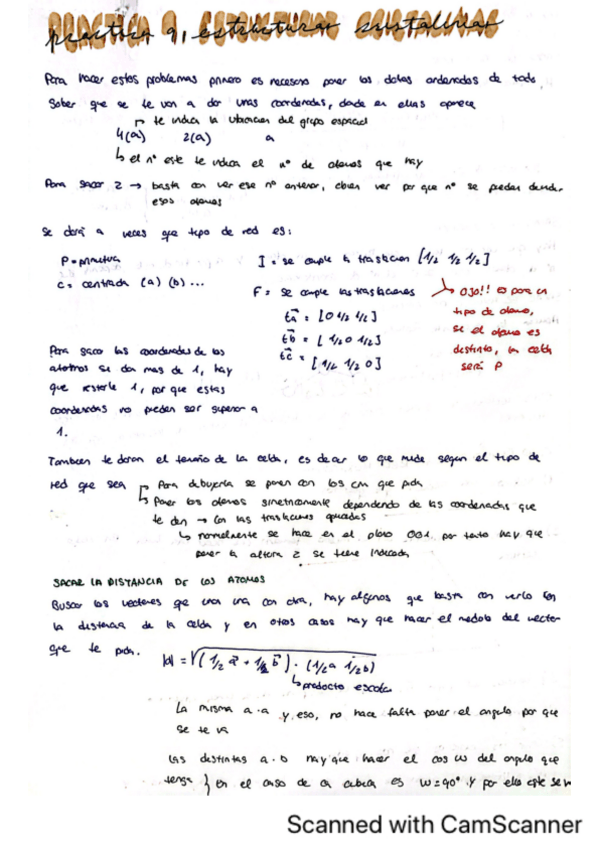 practica 9, estructuras cristalinas
Para hacer estos problemas primero es necesario poner los datos ordenados de todo
Saber que se te van a dar unas coordenadas, donde en ellas aparece
te indica la ubicacion del grupo espacial
4(a) 2(a) a
el nº este te indica el nº de atomos que hay
Para sacar z → basta con ver ese nº anterior, o bien ver por que nº se pueden dividir
esos atomos
Se dará a veces que tipo de red es:
P = primitiva
I = se cumple la traslacion [1/2 1/2 1/2]
C = centrada (a) (b) ...
F = se cumple las traslaciones
ta = [0 1/2 1/2]
tb = [1/2 0 1/2]
tc = [1/2 1/2 0]
OJO!! es para un
tipo de atomo,
si el atomo es
distinto, la celda
será P
Para sacar las coordenadas de los
atomos si da mas de 1, hay
que restarle 1, por que estas
coordenadas no pueden ser superior a
1.
Tambien te daran el tamaño de la celda, es decir lo que mide segun el tipo de
red que sea
Para dibujarla se ponen con los cm que pida
Poner los atomos simetricamente dependiendo de las coordenadas que
te den → con las traslaciones aplicadas
normalmente se hace en el plano 001, por tanto hay que
poner la altura z si se tiene indicada
SACAR LA DISTANCIA DE LOS ATOMOS
Buscar los vectores que unen una con otra, hay algunos que basta con verlo con
la distancia de la celda y en otros casos hay que hacer el modulo del vector
que te pida.
|d| = √(1/2 a + 1/2 b) · (1/2a 1/2b)
producto escalar
La misma a·a y eso, no hace falta poner el angulo por que
se te va
Las distintas a·b hay que hacer el cos w del angulo que
tenga } en el caso de la cubica es w=90º y por ello este se va
Scanned with CamScanner